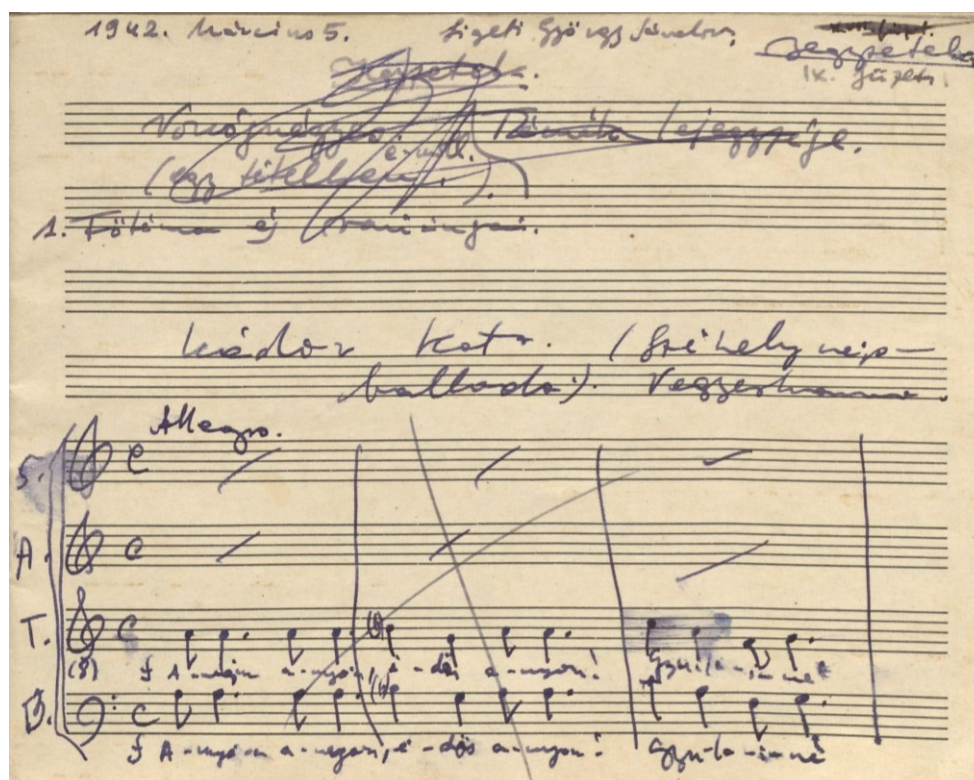 1942. Március 5. Ligeti György Sándor,
Jegyzetek
IX. füzet.
Jegyzetek.
Vonósnégyes
(egy tételben.)
1. Főtéma és
Kádár Kata. (Székely nép-
ballada.) Vegyeskarra.
Allegro.
S.
A.
T.
(8) f A-nyám a-nyám, é-dös a-nyám!
B.
f A-nyám a-nyám, é-dös a-nyám! Gyu-la-inné